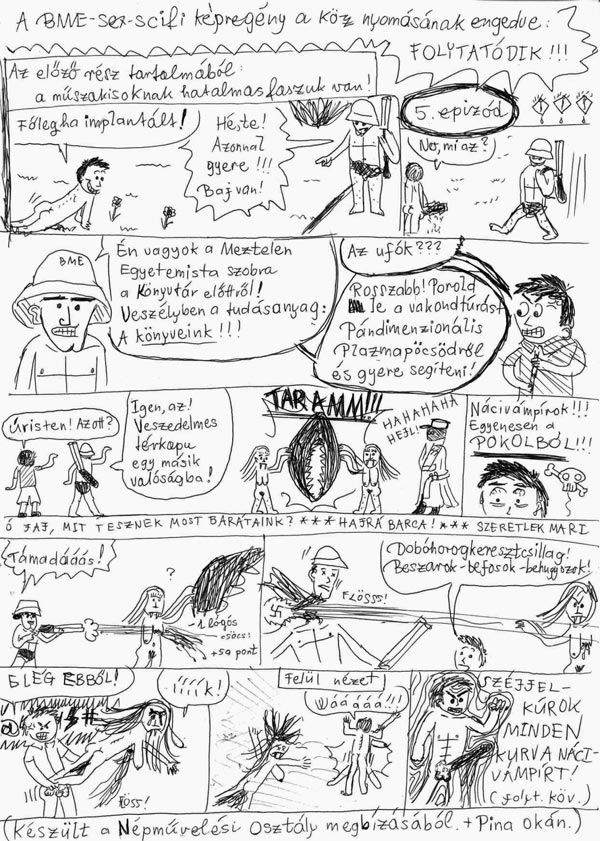 A BME-sex-scifi képregény a köz nyomásának engedve:
FOLYTATÓDIK!!!
Az előző rész tartalmából:
a műszakisoknak hatalmas faszuk van!
5. epizód
Főleg ha implantált!
Héjste!
Azonnal
gyere!!!
Baj van!
No, mi az?
BME
Én vagyok a Meztelen
Egyetemista szobra
a Könyvtár előttről!
Veszélyben a tudásanyag:
A könyveink!!!
Az ufók???
Rosszabb! Porold
le a vakondtúrást
Pándimenzionális
Plazmapöcsödről
és gyere segíteni!
Úristen! Azott?
Igen, az!
Veszedelmes
térkapu
egy másik
valóságba!
TARAMM!!!
HAHAHAHA
HEJL!
Nácivámpírok!!!
Egyenesen a
POKOLBÓL!!!
Ó JAJ, MIT TESZNEK MOST BARÁTAINK? *** HAJRÁ BARCA! *** SZERETLEK MARI
Támadááás!
?
-1 lógós
csöcs:
+50 pont
FLÖSSS!
Dobóhorogkeresztcsillag!
Beszarok-befosok-behugyozok!
ELÉG EBBŐL!
@ #
FÖSS!
.. iíííík!
Felül nézet
Wóááááá!!!
SZÉJJEL-
KÚROK
MINDEN
KURVA NÁCI-
VÁMPÍRT!
(folyt. köv.)
(Készült a Népművelési Osztály megbízásából. + Pina okán.)